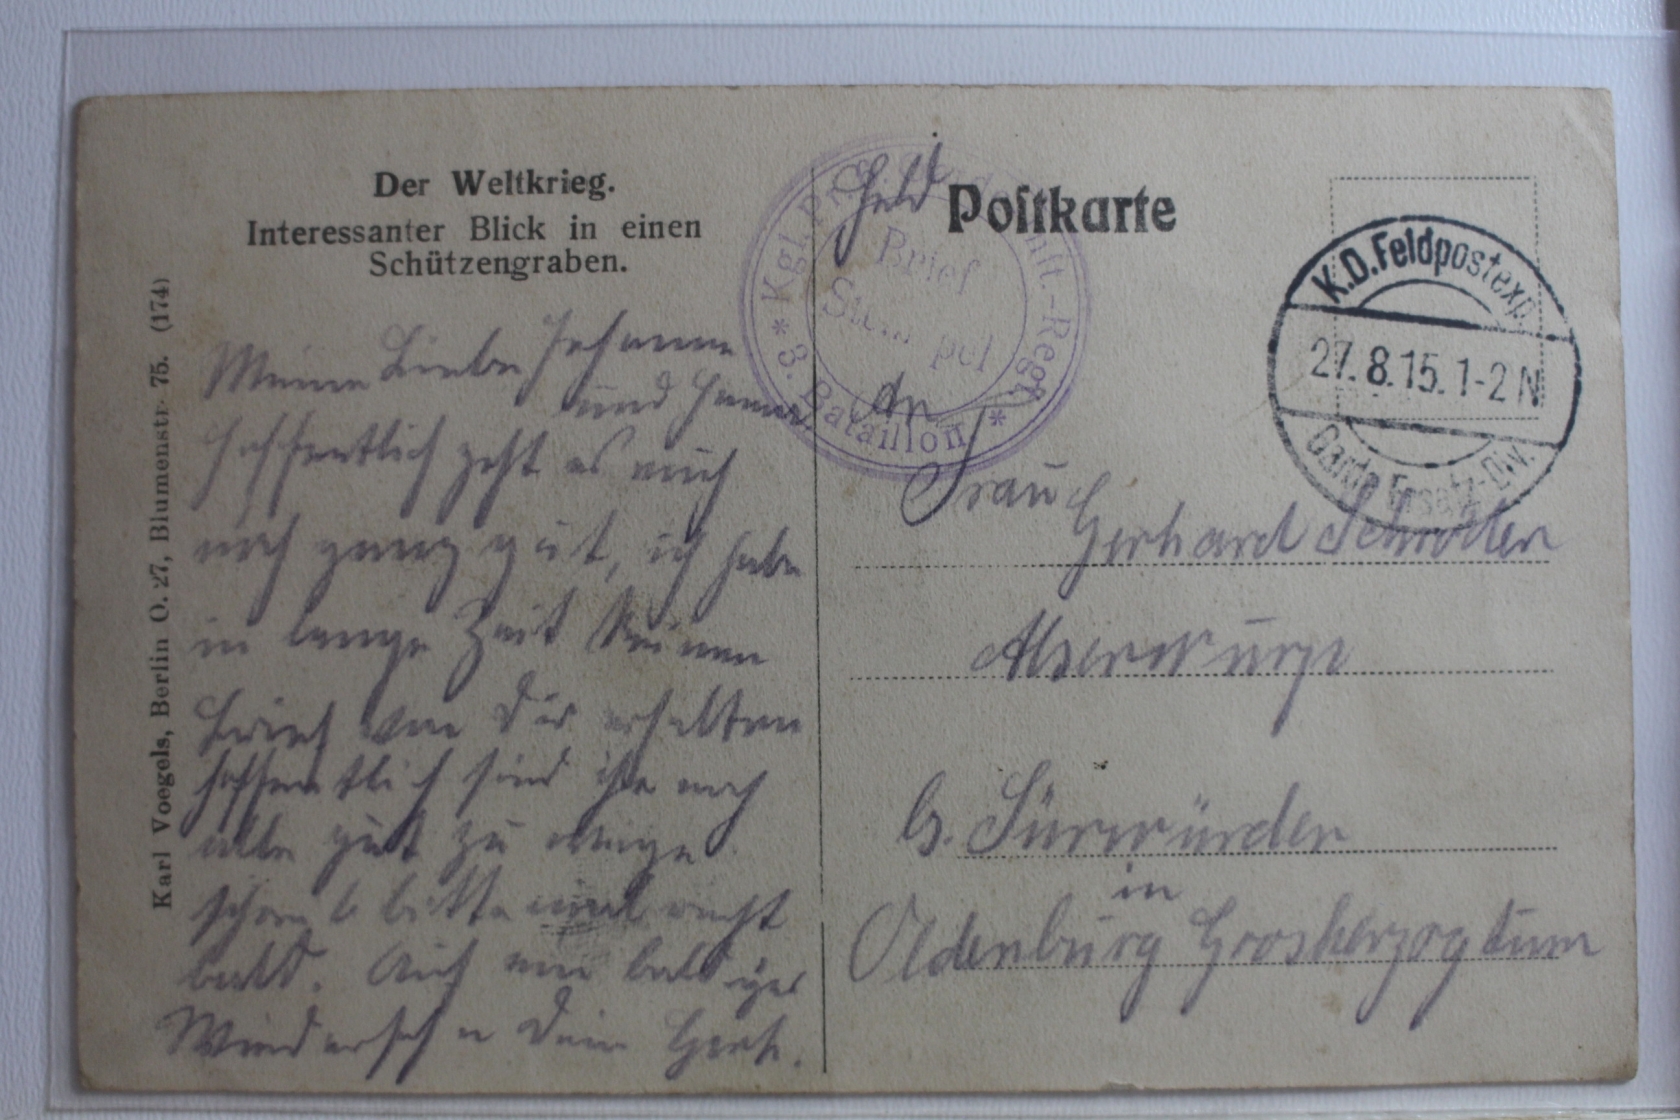 Der Weltkrieg.
Interessanter Blick in einen
Schützengraben.
Karl Voegels, Berlin O. 27, Blumenstr. 75. (174)
Meine Liebe Johanne
und
hoffentlich geht es euch
noch ganz gut, ich habe
in lange Zeit keinen
Brief von Dir erhalten
hoffentlich sind ihr noch
alle gut zu
schreib bitte mal recht
bald. Auf ein baldiges
Wiedersehn Dein Gerh.
Feld Postkarte
Kgl. Pr. Inft.-Regt.
* 3. Bataillon *
Brief
Stempel
K.D. Feldpostexp.
27.8.15. 1-2 N
Garde Ersatz-Div.
An
Frau
Gerhard Schröder
Alserwurp
b. Sürwürden
in
Oldenburg Grosherzogtum